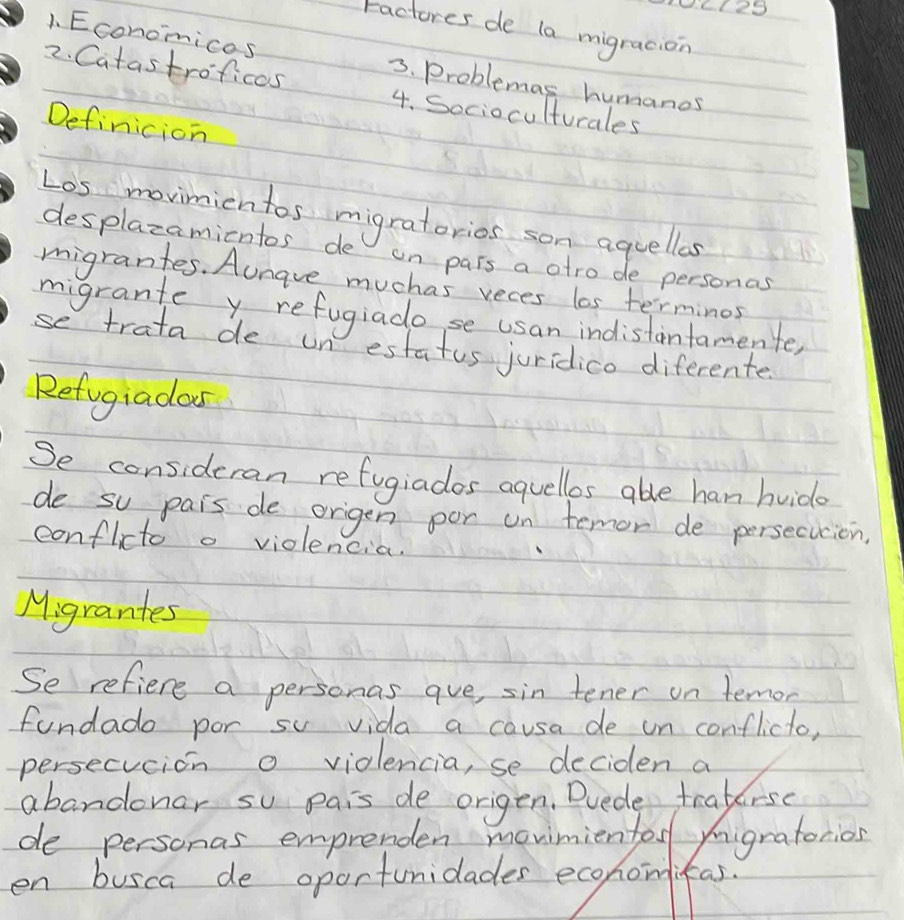 Factores de la migración
1. Económicos
2. Catastróficos
3. Problemas humanos
4. Socioculturales
Definición
Los movimientos migratorios son aquellos
desplazamientos de un país a otro de personas
migrantes. Aunque muchas veces los términos
migrante y refugiado, se usan indistintamente,
se trata de un estatus jurídico diferente.
Refugiados
Se consideran refugiados aquellos que han huido
de su país de origen por un temor de persecución,
conflicto o violencia.
Migrantes
Se refiere a personas que, sin tener un temor
fundado por su vida a causa de un conflicto,
persecución o violencia, se deciden a
abandonar su país de origen. Puede tratarse
de personas emprenden movimientos migratorios
en busca de oportunidades económicas.